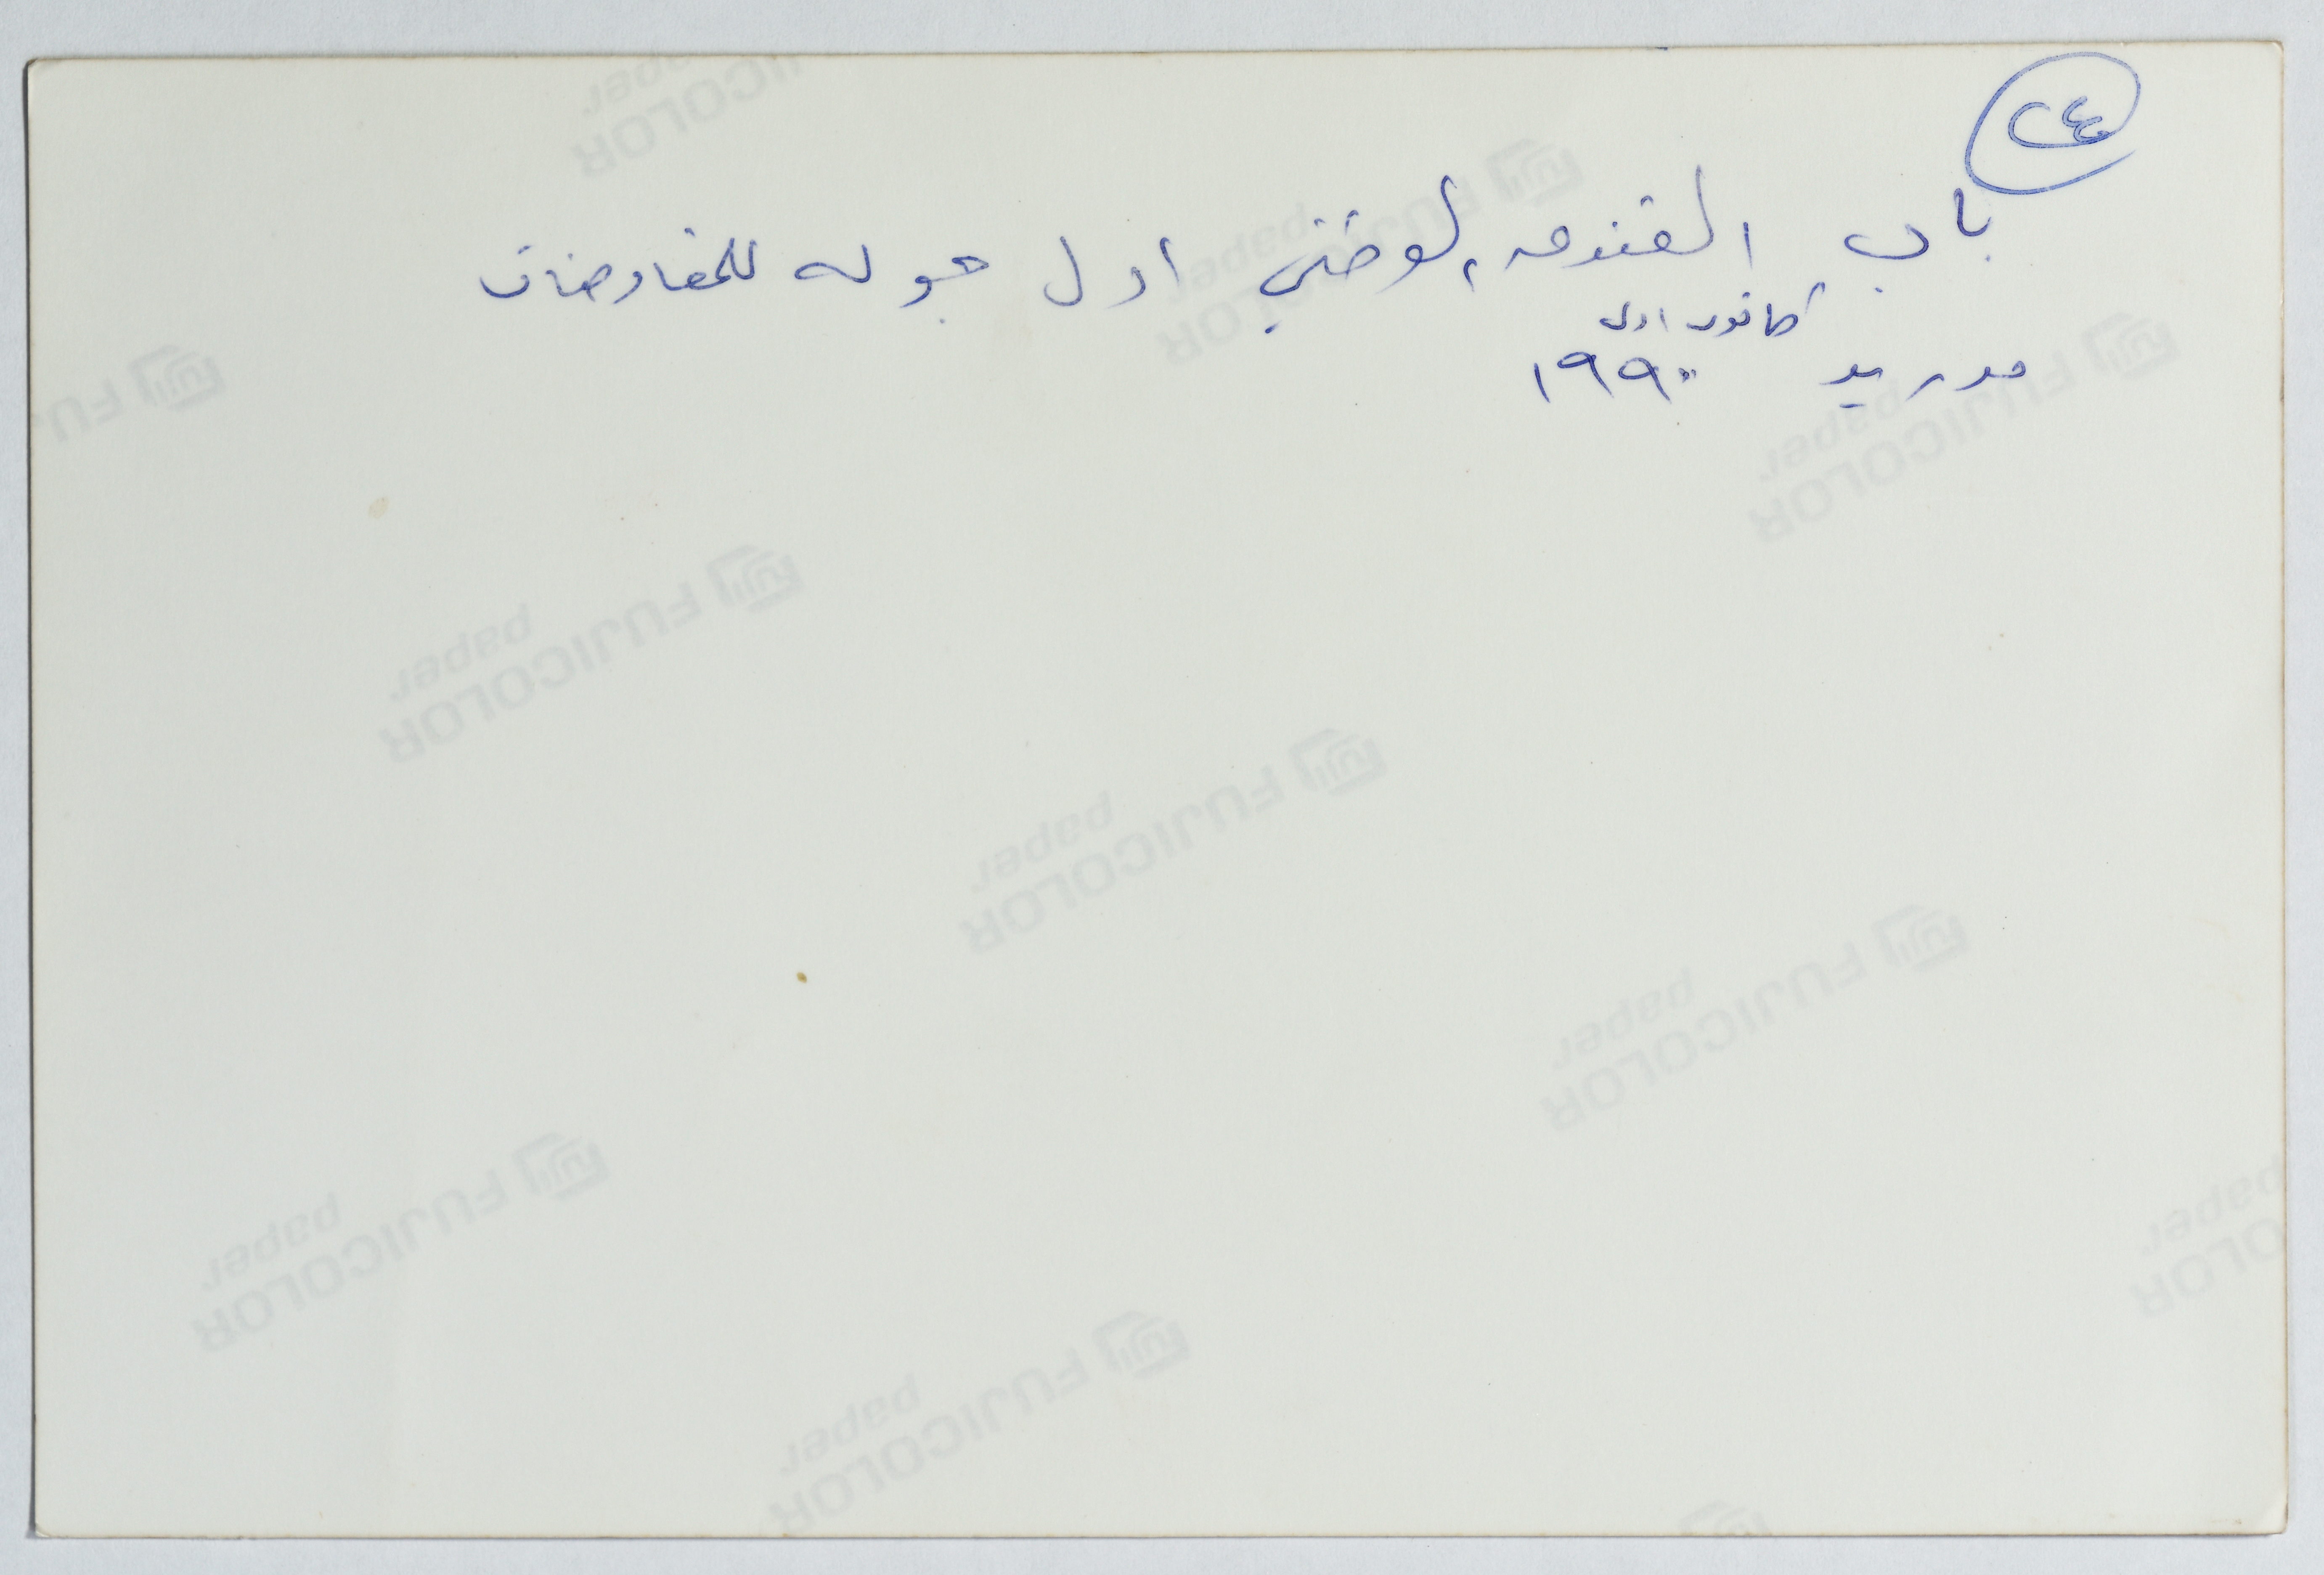 ٢٤
باب الفندق الوطني اول جوله للمفاوضات
كانون اول
مدريد ١٩٩٠
FUJICOLOR paper
FUJICOLOR paper
FUJICOLOR paper
FUJICOLOR paper
FUJICOLOR paper
FUJICOLOR paper
FUJICOLOR paper
FUJICOLOR paper